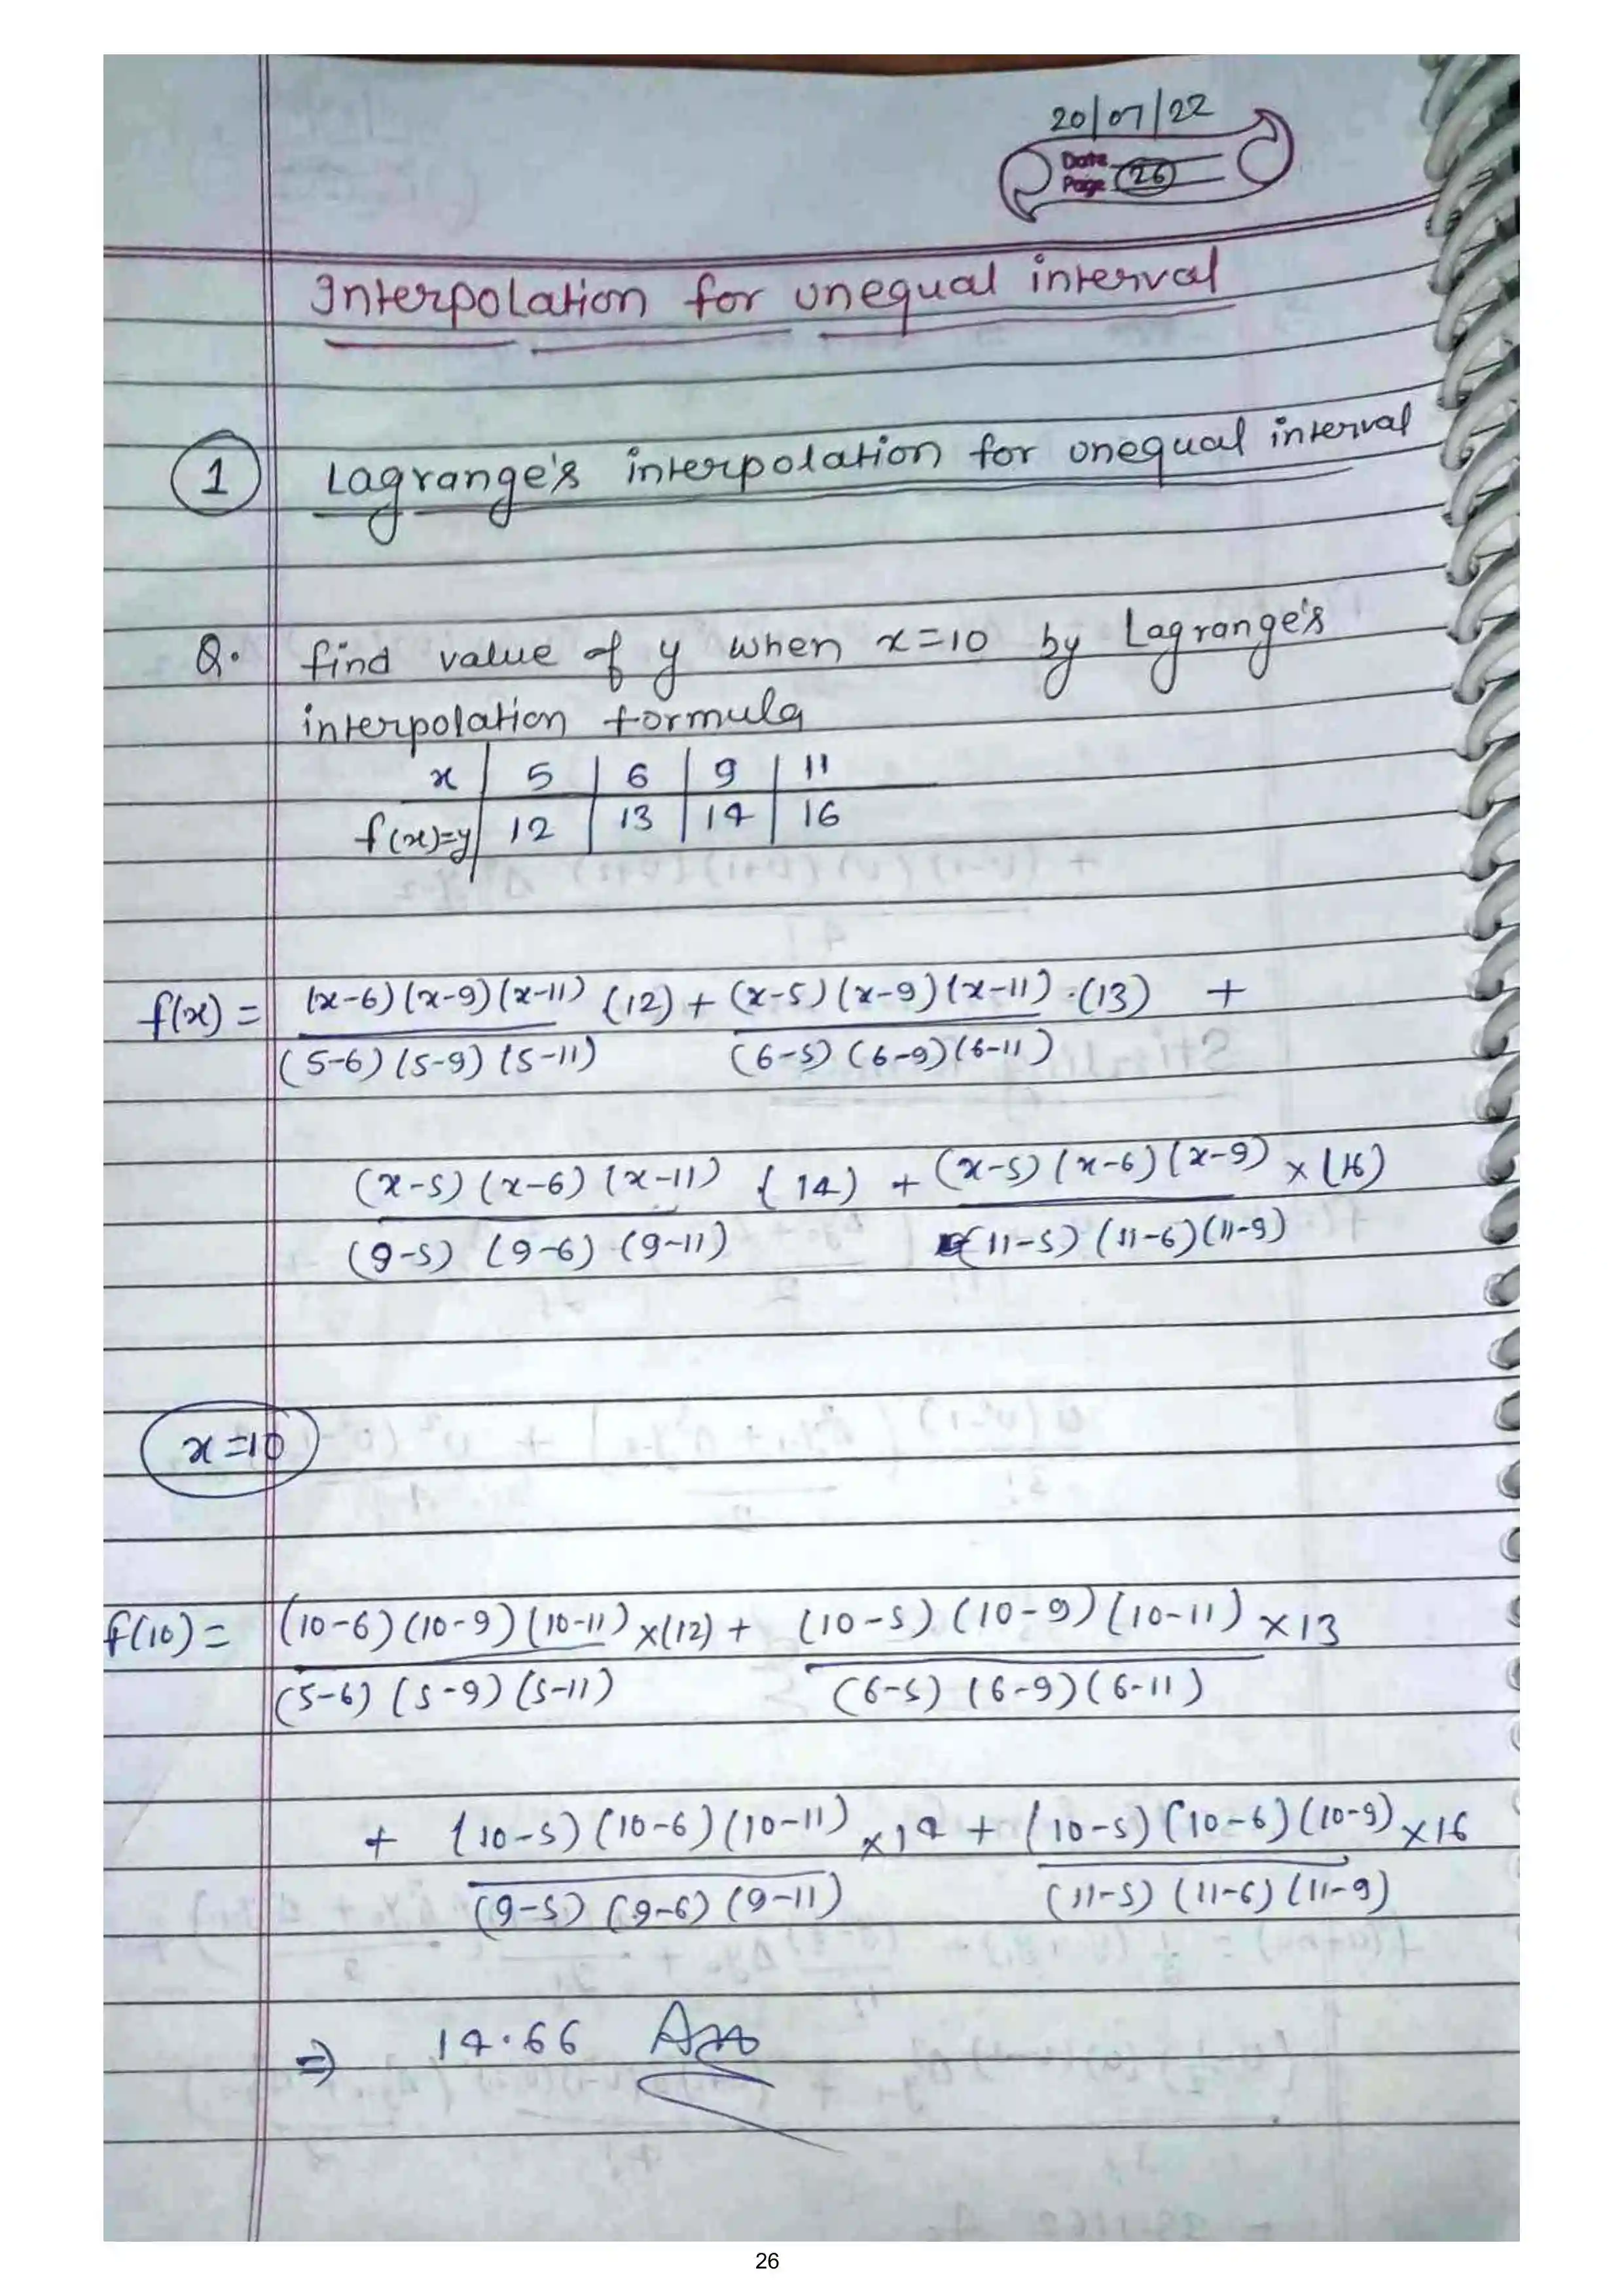 20/07/22
Date
Page 26
Interpolation for unequal interval
1 Lagrange's interpolation for unequal interval
Q. find value of y when x=10 by Lagrange's
interpolation formula
x | 5 | 6 | 9 | 11
f(x)=y | 12 | 13 | 14 | 16
f(x) = (x-6)(x-9)(x-11) (12) + (x-5)(x-9)(x-11) .(13) +
(5-6)(5-9)(5-11) (6-5)(6-9)(6-11)
(x-5)(x-6)(x-11) (14) + (x-5)(x-6)(x-9) x (16)
(9-5) (9-6) (9-11) (11-5) (11-6)(11-9)
x=10
f(10) = (10-6)(10-9)(10-11) x(12) + (10-5)(10-9)(10-11) x13
(5-6)(5-9)(5-11) (6-5)(6-9)(6-11)
+ (10-5)(10-6)(10-11) x14 + (10-5)(10-6)(10-9) x16
(9-5)(9-6)(9-11) (11-5)(11-6)(11-9)
⇒ 14.66 Ans
26